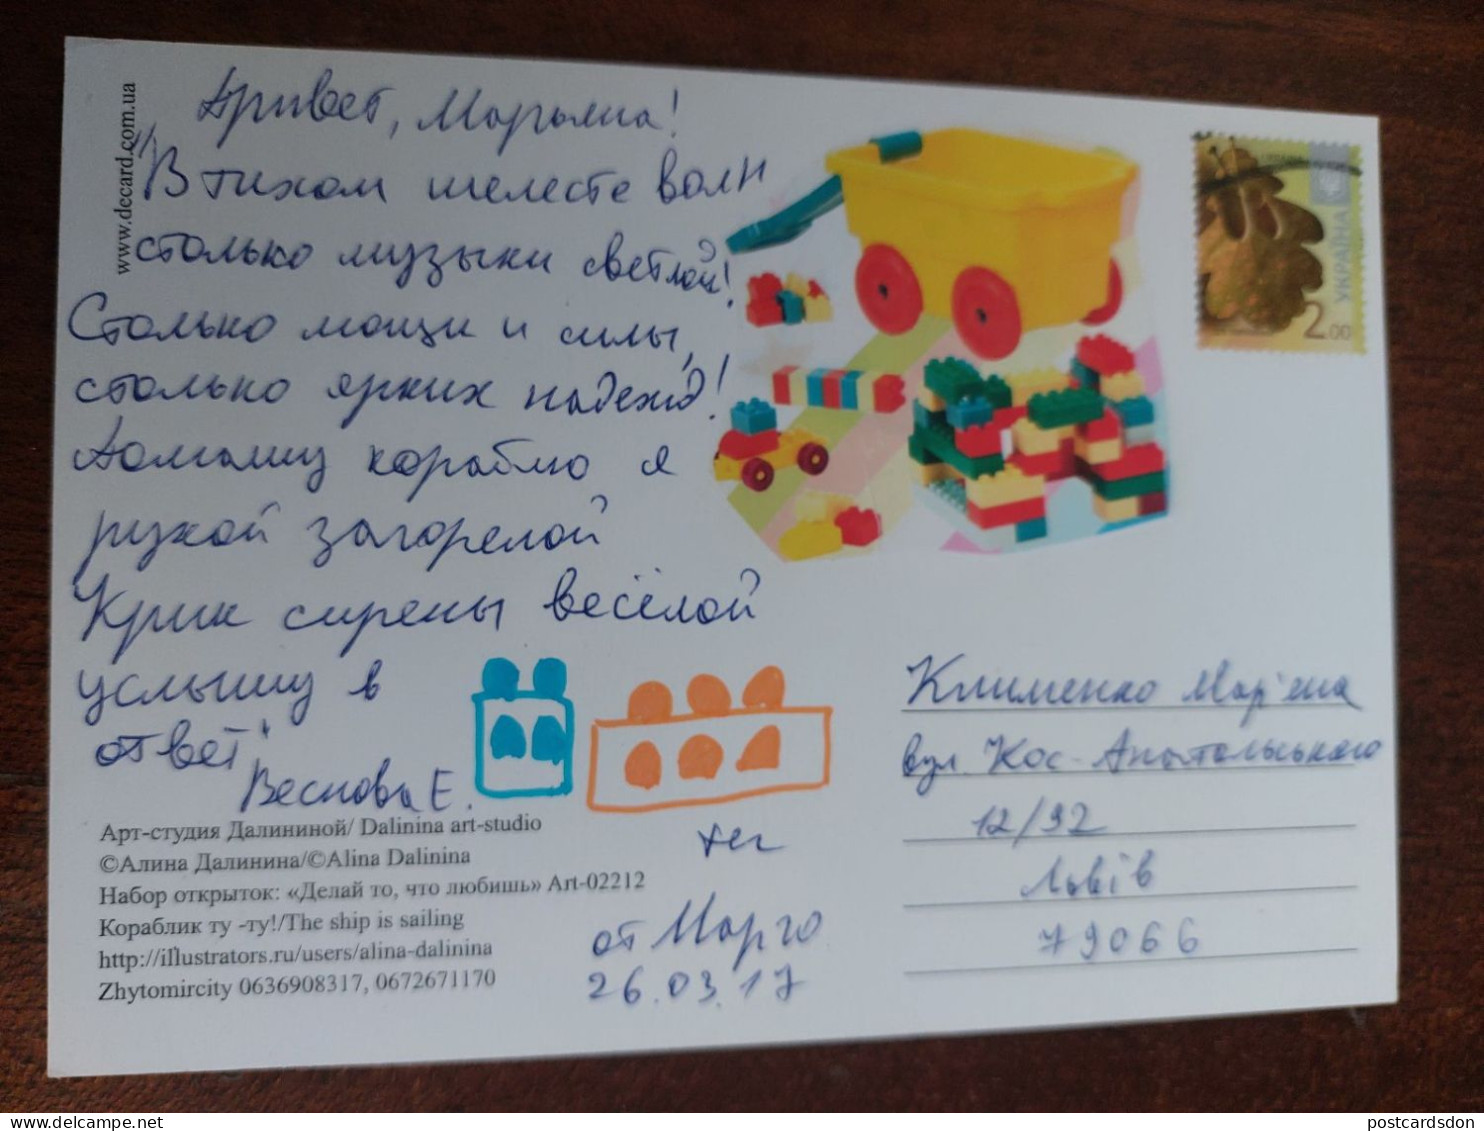 www.decard.com.ua
Привет, Марьяна!
"В тихом шелесте волн
столько музыки светлой!
Столько мощи и силы,
столько ярких надежд!
Помашу кораблю я
рукой загорелой
Крик сирены весёлой
услышу в
ответ"
Веснова Е.
Арт-студия Далининой/ Dalinina art-studio
©Алина Далинина/©Alina Dalinina
Набор открыток: «Делай то, что любишь» Art-02212
Кораблик ту -ту!/The ship is sailing
http://illustrators.ru/users/alina-dalinina
Zhytomircity 0636908317, 0672671170
тег
от Марго
26.03.17
УКРАЇНА
2.00
Клименко Мар'яна
вул. Кос-Анатольського
12/92
Львів
79066
postcardsdon